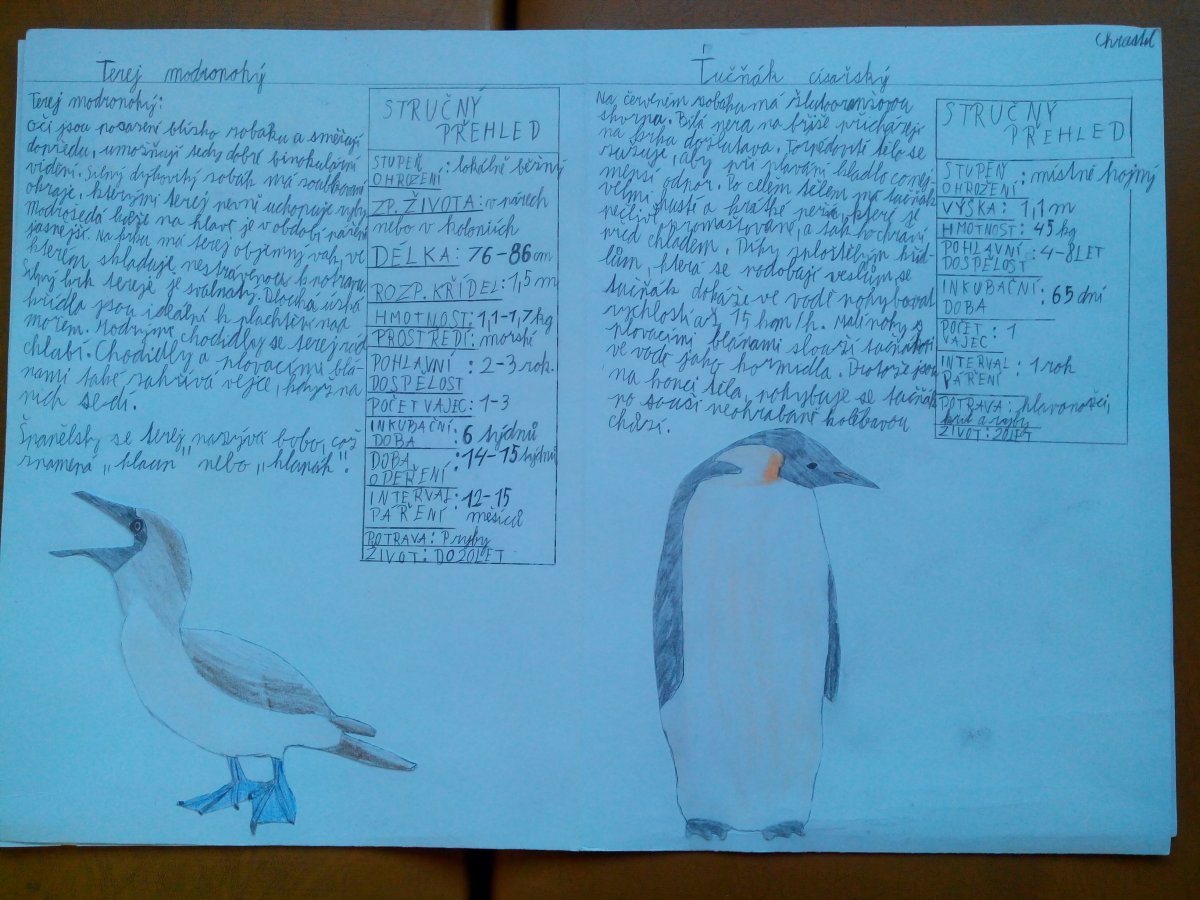 Chrastil
Terej modronohý
Terej modronohý:
Oči jsou posazeny blízko zobáku a směřují
dopředu, umožňují tedy dobré binokulární
vidění. Silný dýkovitý zobák má zoubkované
okraje, kterými terej pevně uchopuje ryby.
Modrošedá kůže na hlavě je v období páření
jasnější. Na krku má terej objemný vak, ve
kterém skladuje nestrávenou potravu.
Silný krk tereje je svalnatý. Dlouhá úzká
křídla jsou ideální k plachtění nad
mořem. Modrými chodidly se terej rád
chlubí. Chodidly a plovacími blá-
nami také zahřívá vejce, když na
nich sedí.
Španělsky se terej nazývá bobo, což
znamená „klaun" nebo „hlupák".
STRUČNÝ
PŘEHLED
STUPEŇ OHROŽENÍ: lokálně běžný
ZP. ŽIVOTA: v párech
nebo v koloniích
DÉLKA: 76-86 cm
ROZP. KŘÍDEL: 1,5 m
HMOTNOST: 1,1-1,7 kg
PROSTŘEDÍ: mořské
POHLAVNÍ DOSPĚLOST: 2-3 rok.
POČET VAJEC: 1-3
INKUBAČNÍ DOBA: 6 týdnů
DOBA OPEŘENÍ: 14-15 týdnů
INTERVAL PÁŘENÍ: 12-15
měsíců
POTRAVA: ryby
ŽIVOT: DO 20 LET
Tučňák císařský
Na červeném zobáku má žlutooranžovou
skvrnu. Bílá pera na břiše přecházejí
na krku do zlatava. Torpédovité tělo se
zužuje, aby při plavání kladlo co nej-
menší odpor. Po celém těle má tučňák
velmi hustá a krátká peří, které si
pečlivě promašťuje, a tak ho chrání
před chladem. Díky zploštělým kříd-
lům, která se podobají veslům se
tučňák dokáže ve vodě pohybovat
rychlostí až 15 km/h. Malé nohy s
plovacími blánami slouží tučňákovi
ve vodě jako kormidla. Protože jsou
na konci těla, pohybuje se tučňák
po souši neohrabaně kolébavou
chůzí.
STRUČNÝ
PŘEHLED
STUPEŇ OHROŽENÍ: místně hojný
VÝŠKA: 1,1 m
HMOTNOST: 45 kg
POHLAVNÍ DOSPĚLOST: 4-8 LET
INKUBAČNÍ DOBA: 65 dní
POČET VAJEC: 1
INTERVAL PÁŘENÍ: 1 rok
POTRAVA: hlavonožci,
kril a ryby
ŽIVOT: 20 LET